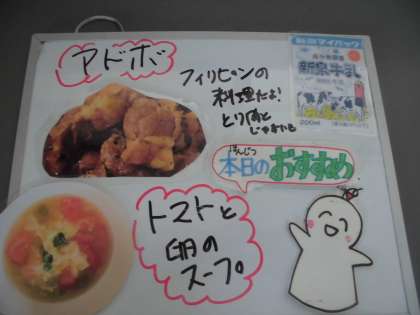 アドボ
フィリピンの
料理だよ!
とり肉と
じゃがいも
200ml
ほんじつ
本日のおすすめ
トマトと
卵の
スープ